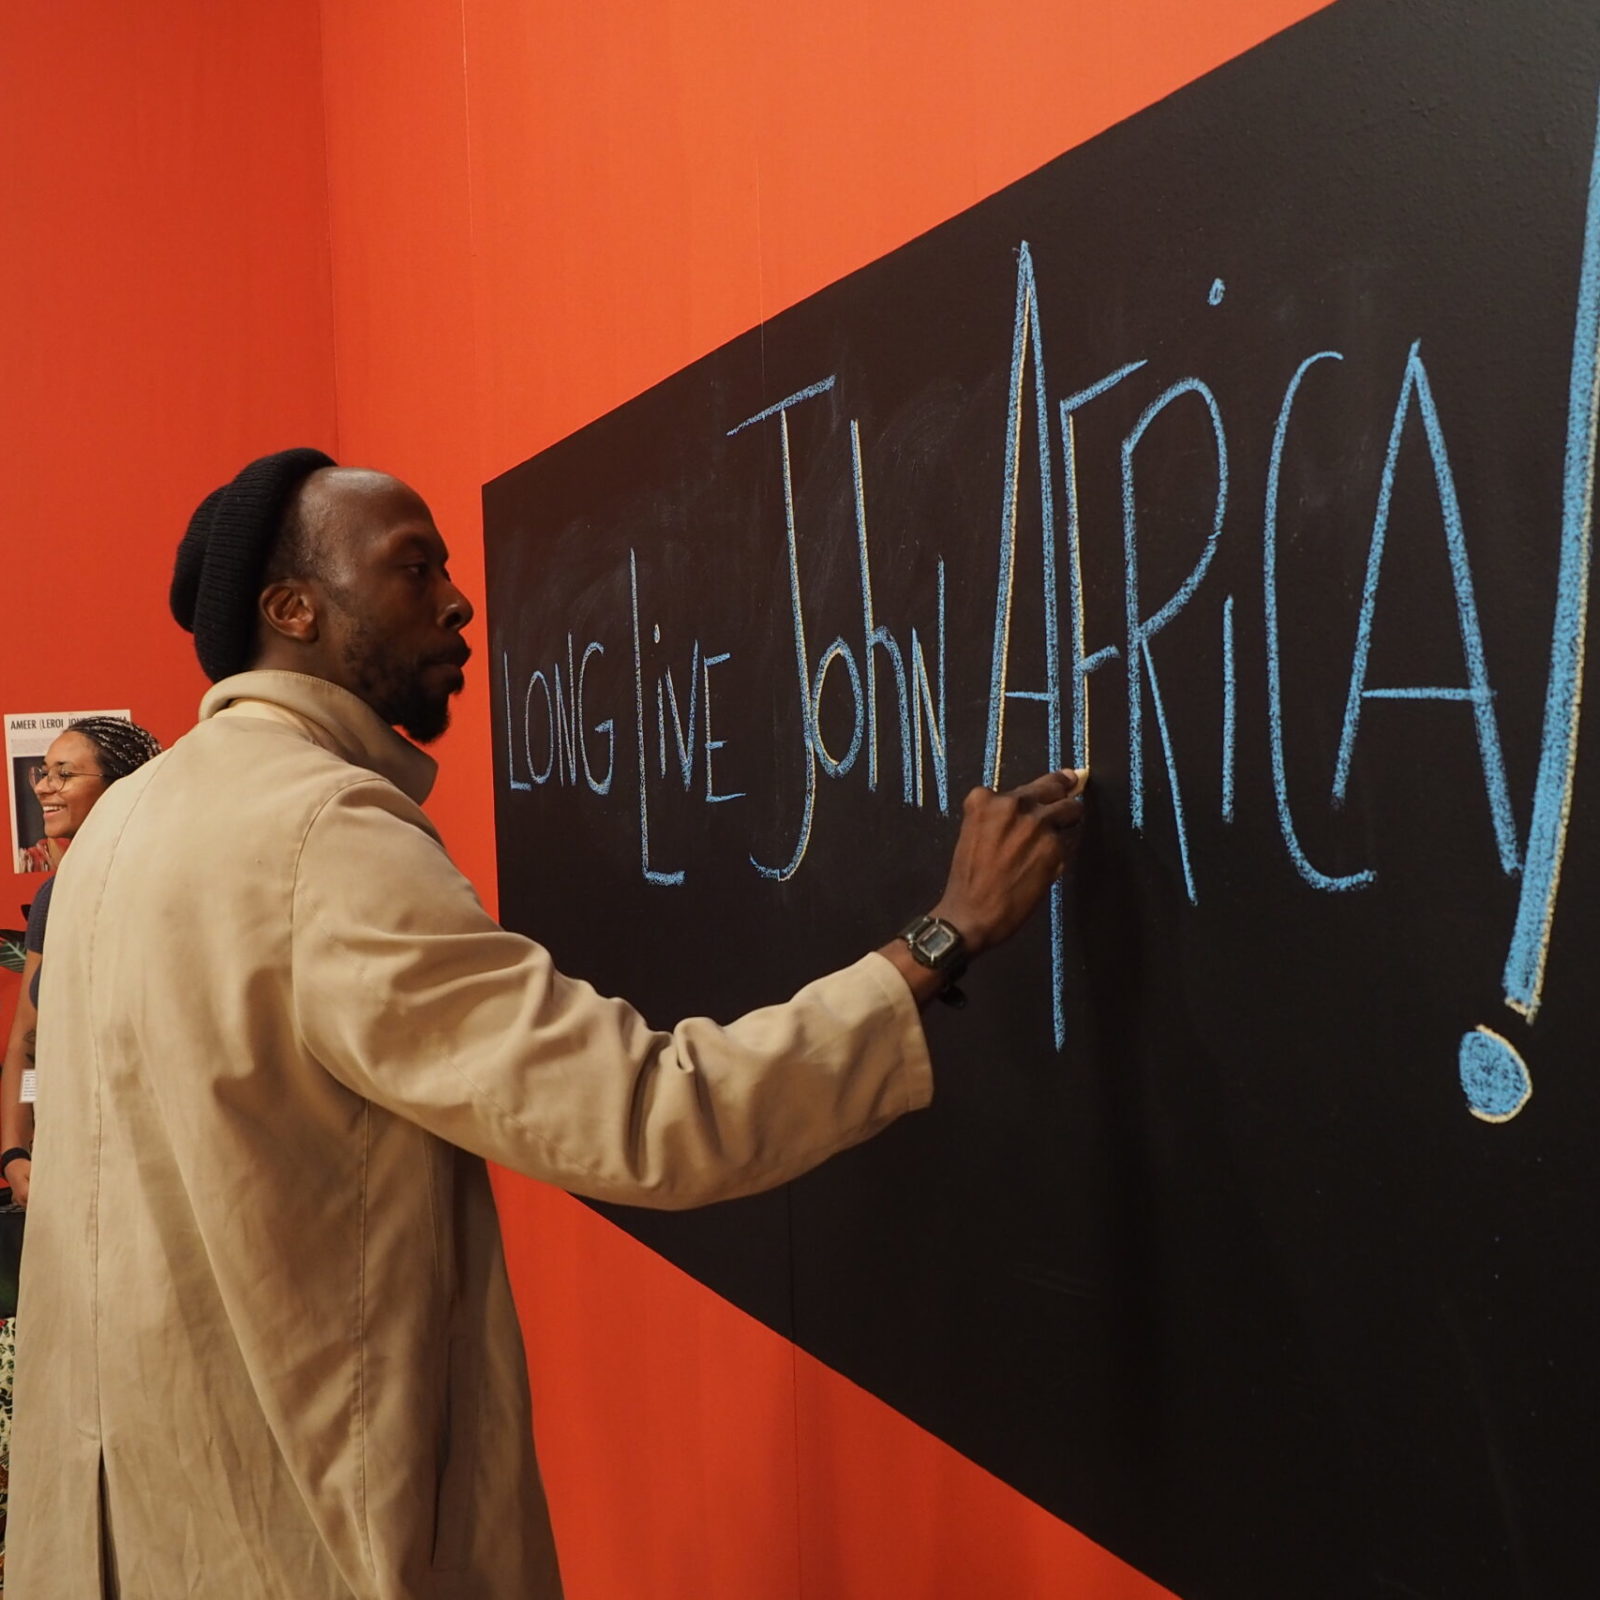 AMEER (LEROI
LONG LiVE JohN AFRiCA!